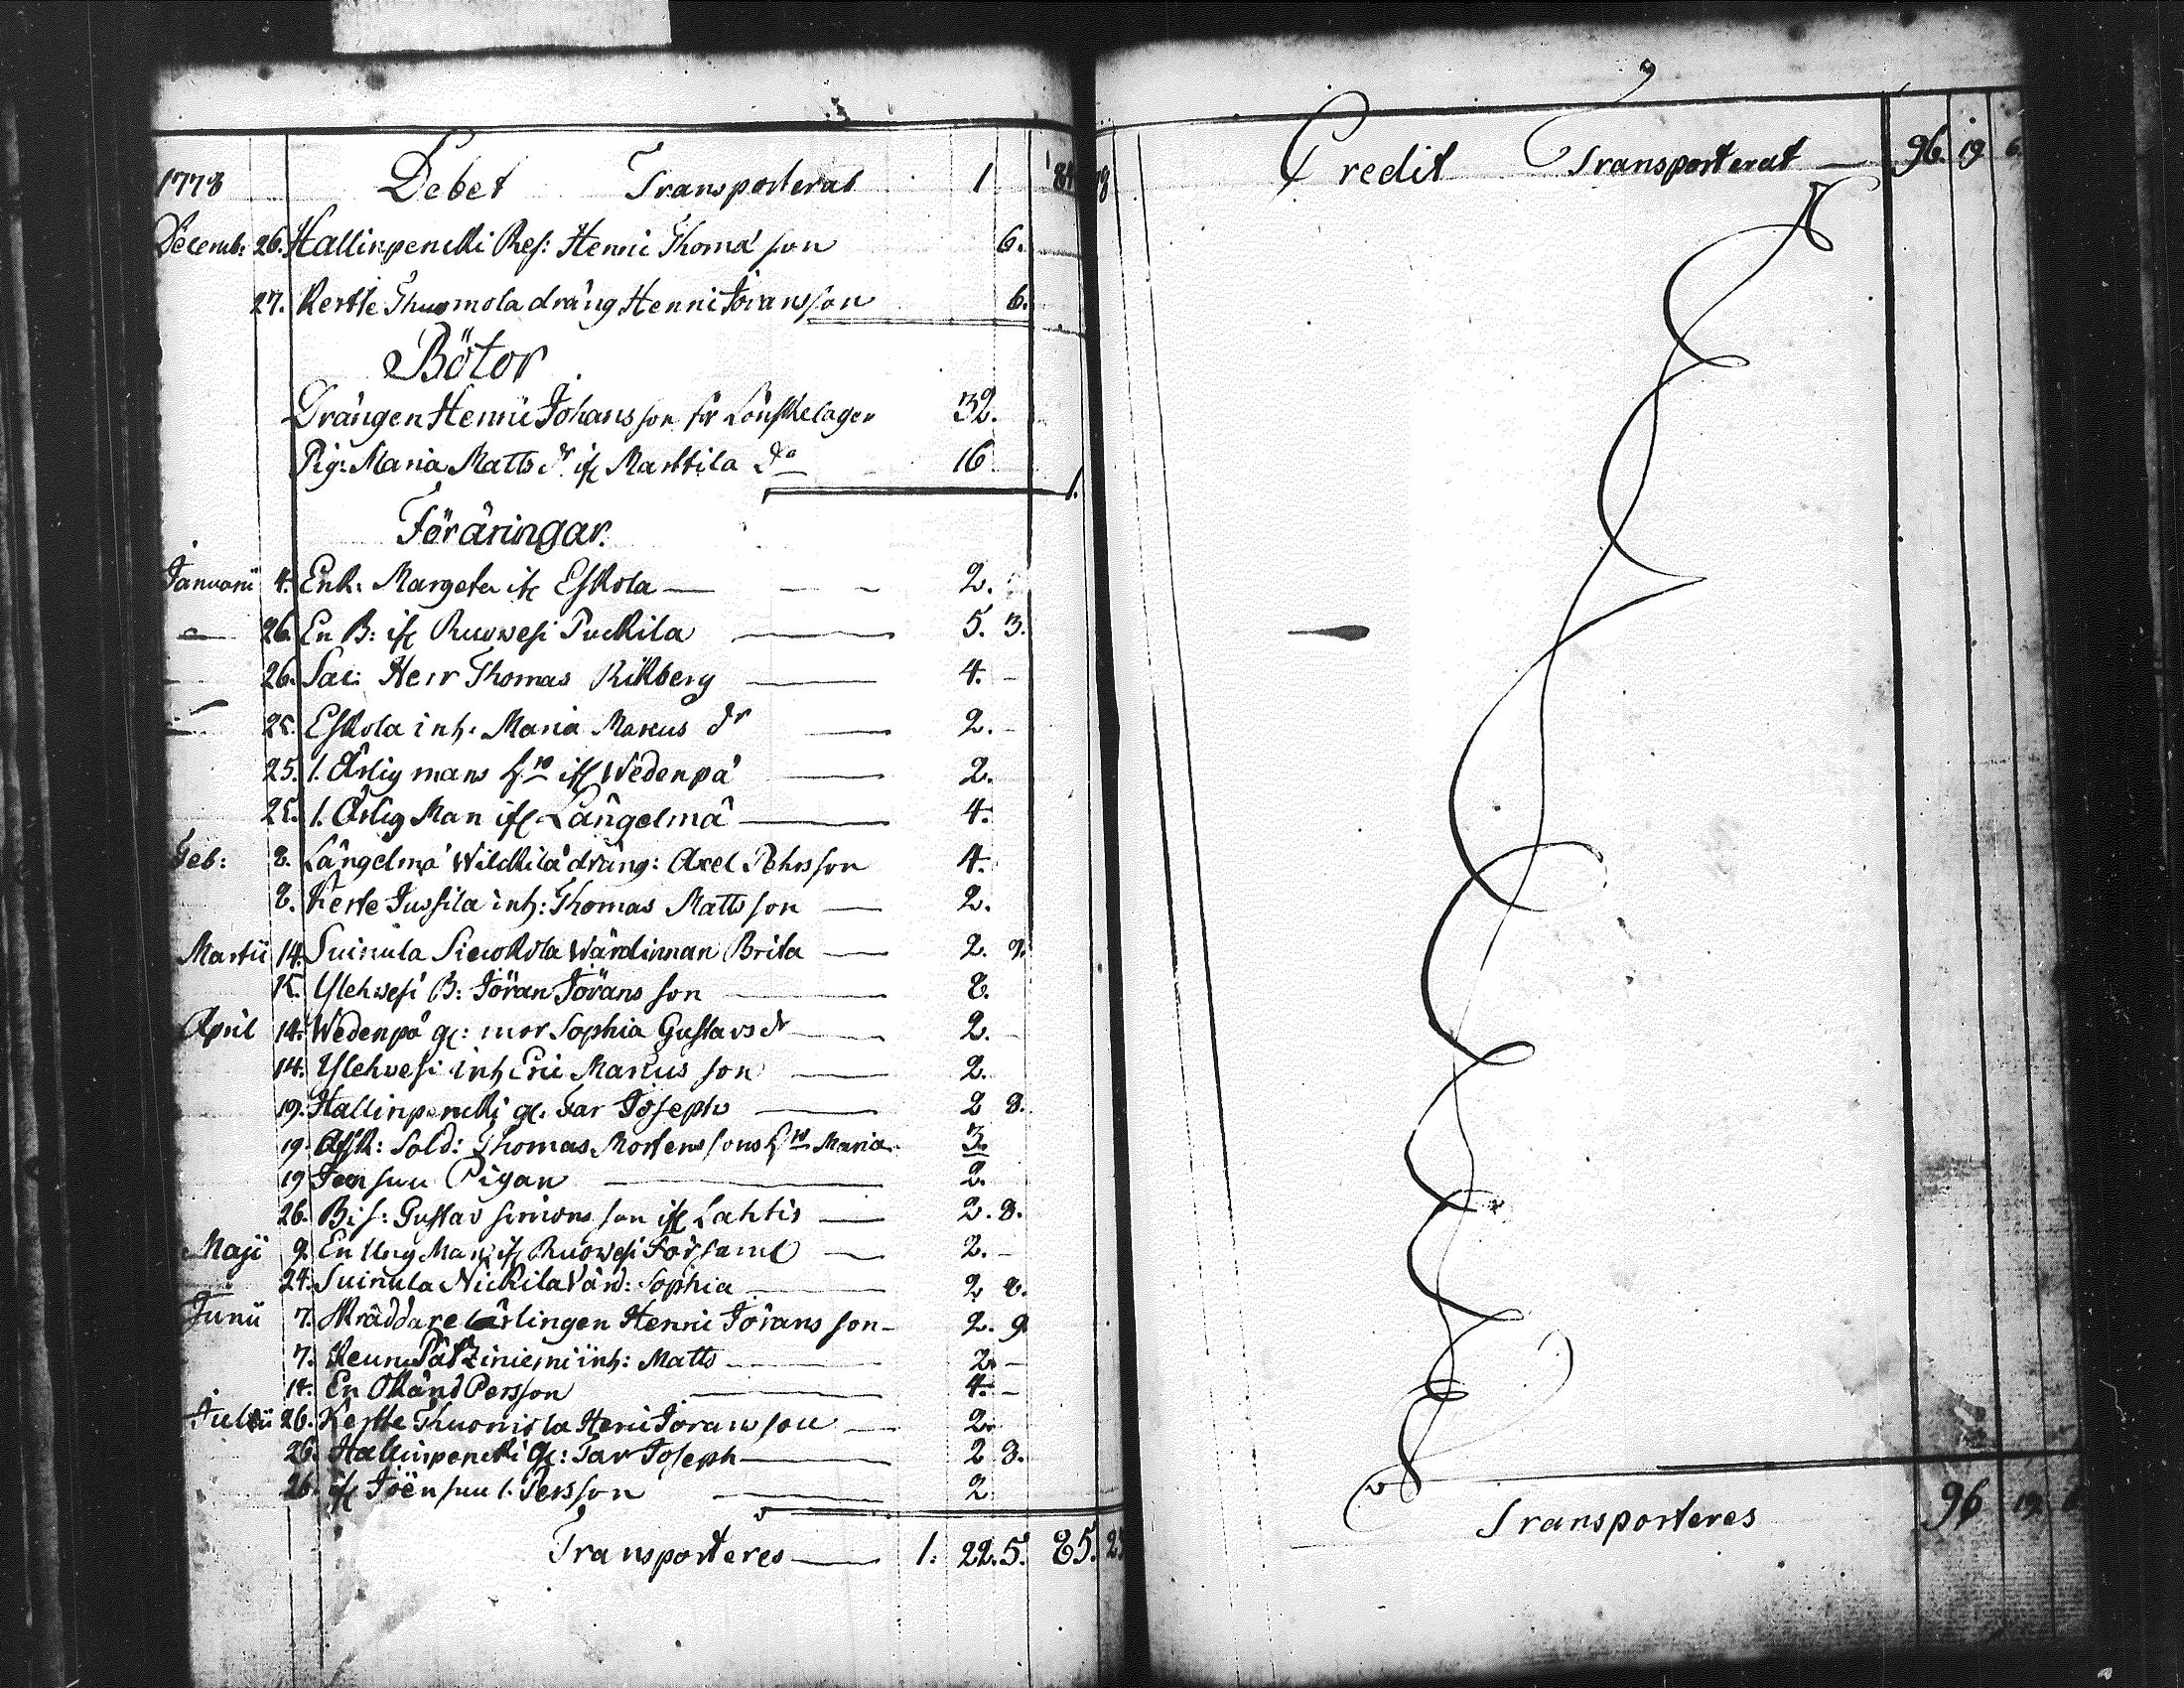 1778 Debet Transporterat 1 84
Decemb: 26. Hallinpenicki Ref: Henric Thomasson 6.
27. Kertte Thuomola dräng Henric Jöransson 6.
Bötor
Drängen Henric Johansson för Lönskelager 32.
Pig: Maria Matts dr if Marttila do 16 1.
Föräringar.
Januarii 4. Enk: Margeta if Eskola 2.
26. En B: if Ruowesi Puckila 5. 3.
26. Sac: Herr Thomas Rikberg 4. -
25. Eskola inh. Maria Marcus dr 2. -
25. 1. Ärlig mans h:ro if Wedenpä 2.
25. 1. Ärlig Man if Längelmä 4.
Feb: 8. Längelmä Wilckilä dräng: Axel Pehrsson 4.
8. Kerte Jussila inh: Thomas Mattsson 2.
Martii 14. Suinula Siewkola Wärdinnan Brita 2. 9.
15. Ylehwesi B: Jöran Jöransson 8.
April 14. Wedenpä gl: mor Sophia Gustavs dr 2. -
14. Ylehvesi inh Eric Marcusson 2.
19. Hallinpenicki gl. Far Joseph 2 8.
19. Afsk: Sold: Thomas Mortenssons h:ro Maria 3.
19 Joensuu Pigan 2.
26. B: s: Gustav Simonsson if Lahtis 2. 8.
Maji 9. En Ung Man if Ruowesi Församl 2. -
24. Suinula Nickila Värd: Sophia 2 8.
Junii 7. Skräddare lärlingen Henric Jöransson 2. 9.
7. Keuru Pätziniemi inh: Matts 2. -
14. En Okänd Persson 4. -
Julii 26. Kertte Thuomola Henric Joransson 2.
26. Hallinpenicki Gl: Far Joseph 2 8.
26. if Joënsuu 1. Persson 2
Transporteres 1. 22. 5. 85.
9
Credit Transporterat 96. 19 6.
Transporteres 96 19.